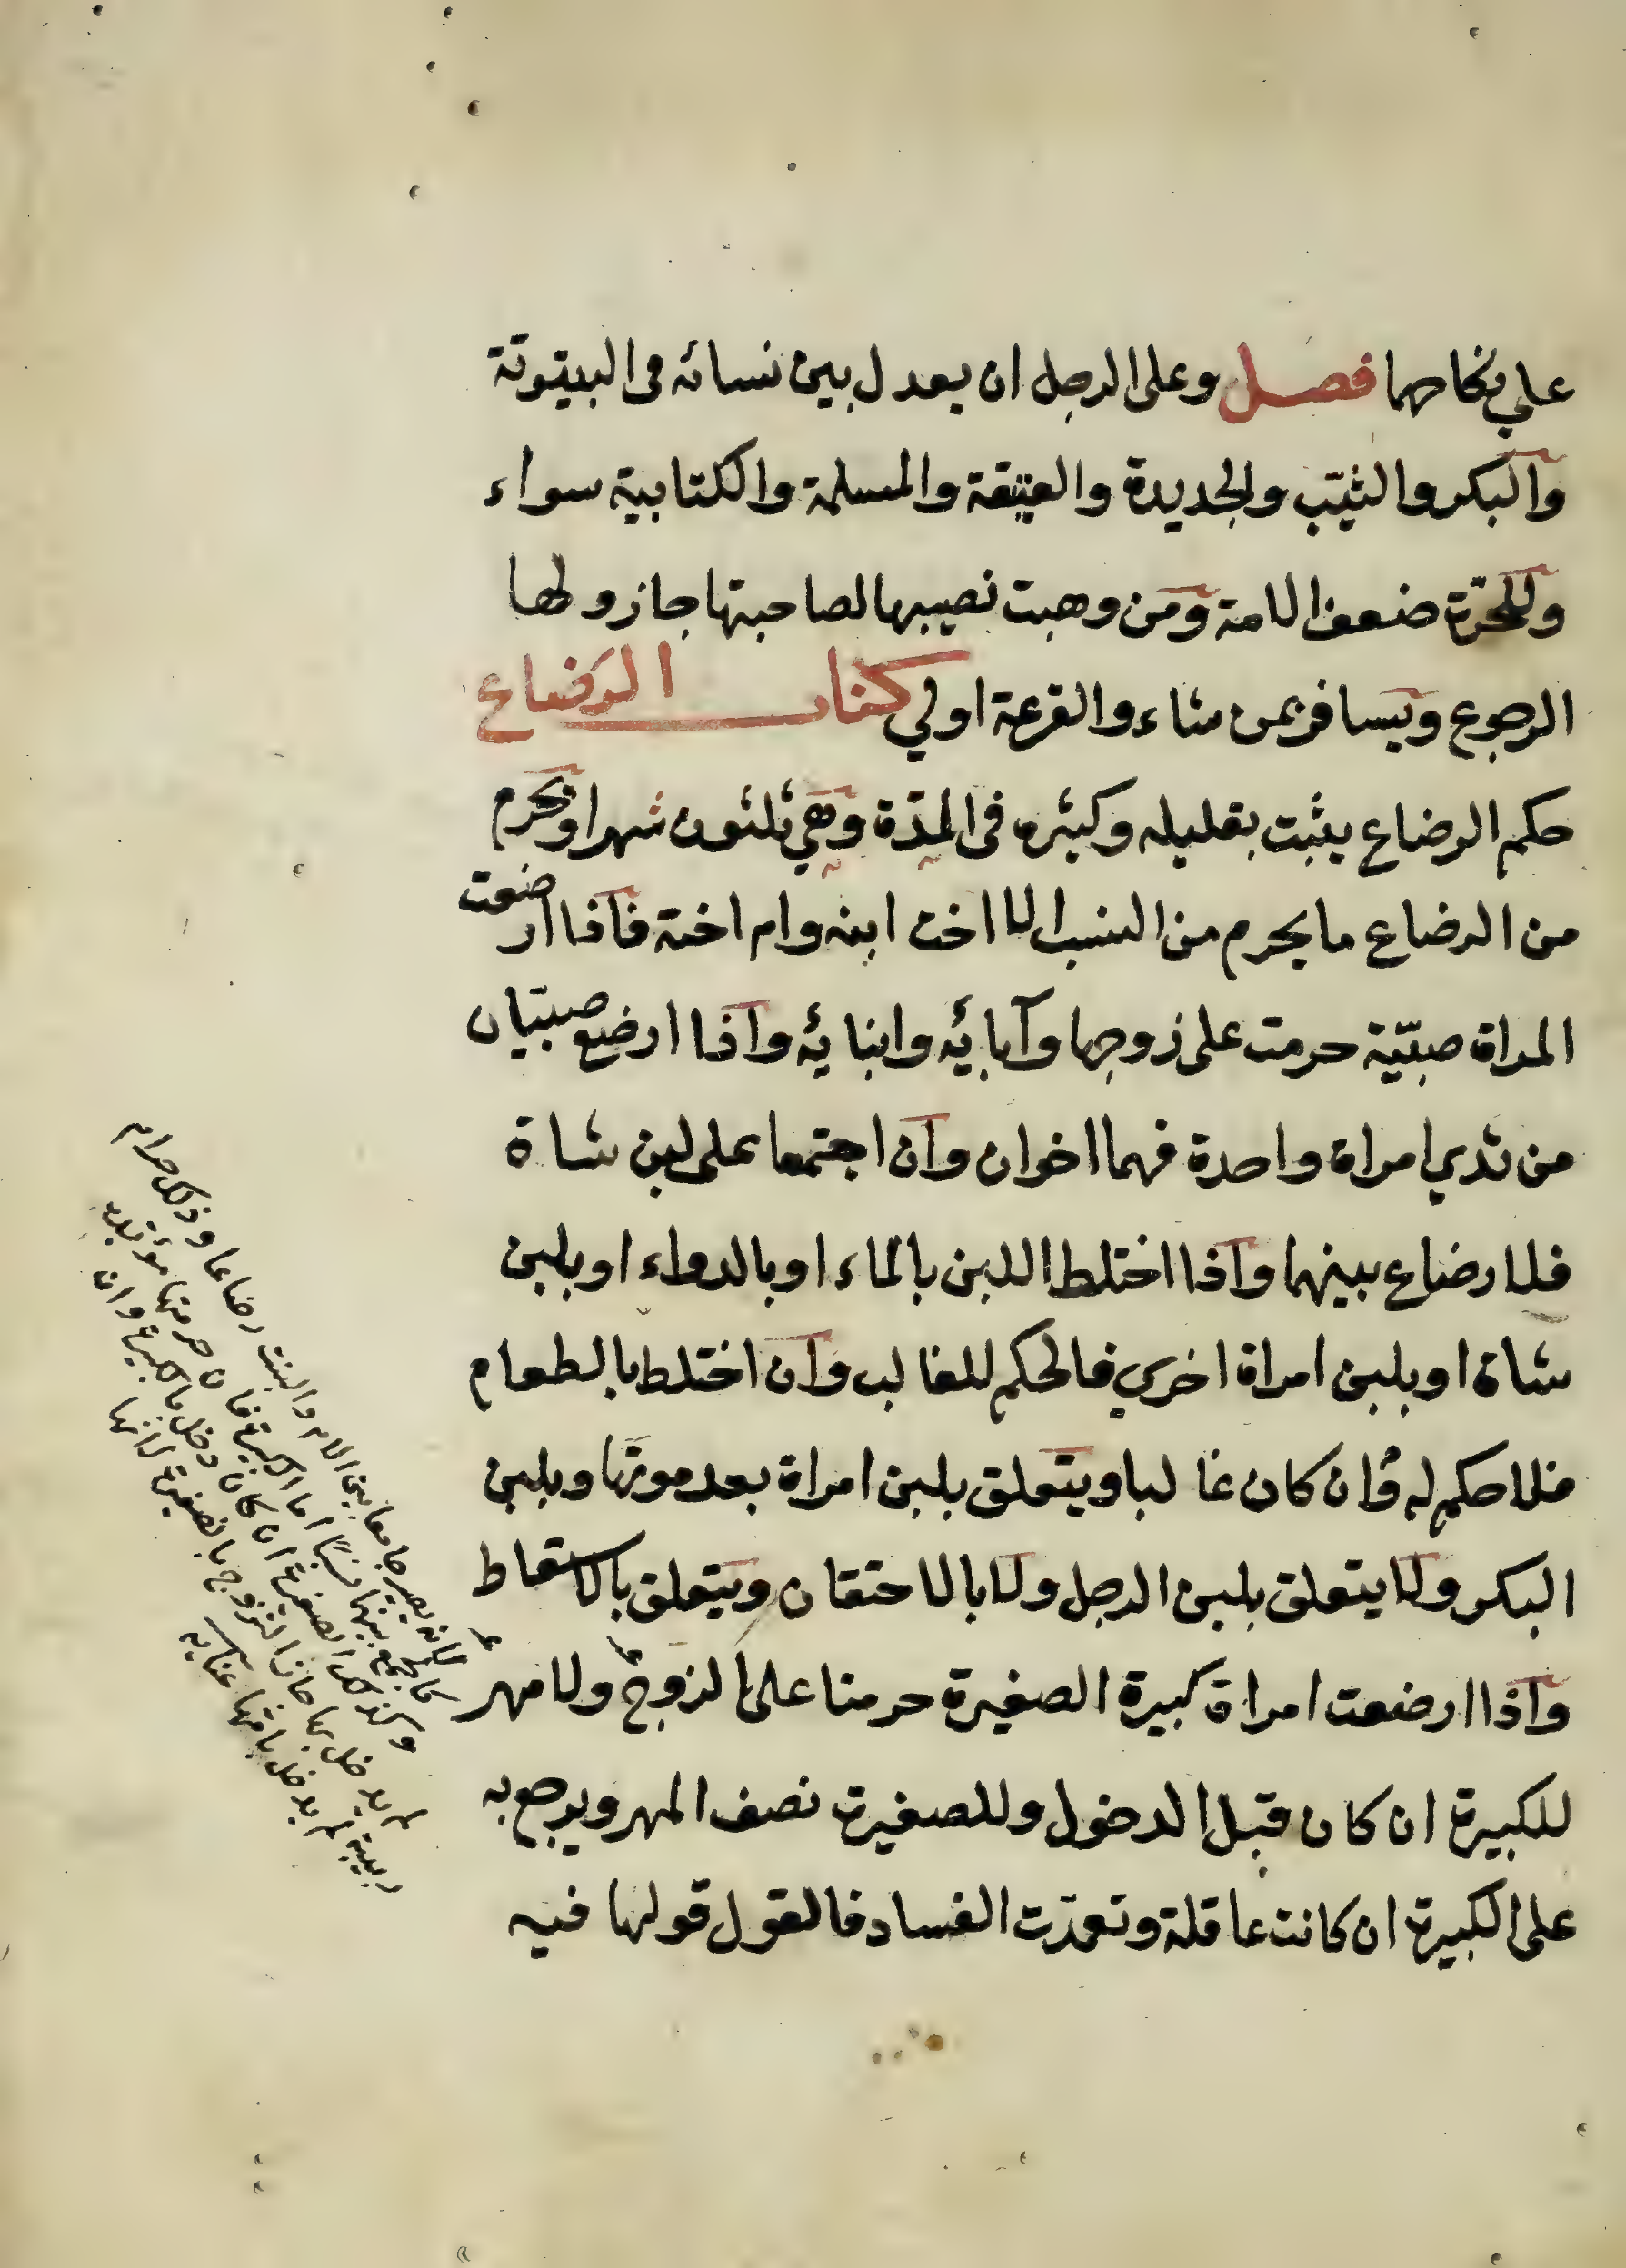 علي نكاحهما فصل وعلى الرجل ان يعدل بين نسائه فى البيتوتة
والبكر والثيّب والجديدة والعتيقة والمسلمة والكتابية سواء
وللحرّة ضعف الامة ومن وهبت نصيبها لصاحبتها جاز ولها
الرجوع ويسافر بمن شاء والقرعة اولي كتاب الرضاع
حكم الرضاع يثبت بقليله وكثيره فى المدّة وهي ثلثون شهرا ويحرم
من الرضاع ما يحرم من النسب الا اخت ابنه وام اخته فاذا ارضعت
المراة صبيّة حرمت على زوجها وآبائه وابنائه واذا ارضع صبيّان
من ثدي امراة واحدة فهما اخوان وان اجتمعا على لبن شاة
فلا رضاع بينهما واذا اختلط اللبن بالماء او بالدواء او بلبن
شاة او بلبن امراة اخري فالحكم للغالب وان اختلط بالطعام
فلا حكم له وان كان غالبا ويتعلق بلبن امراة بعد موتها وبلبن
البكر ولا يتعلق بلبن الرجل ولا بالاحتقان ويتعلق بالاسقاط
واذا ارضعت امراة كبيرة الصغيرة حرمتا على الزوج ولا مهر
للكبيرة ان كان قبل الدخول وللصغيرة نصف المهر ويرجع به
على الكبيرة ان كانت عاقلة وتعمدّت الفساد فالقول قولها فيه
لانه يصير جامعا بين الام والبنت رضاعا وذلك حرام
كالجمع بينهما نسبًا اما الكبيرة فان حرمتها مؤبدة
وكذلك الصغيرة ان كان دخل بالكبيرة وان
لم يدخل بها جاز التزوج بالصغيرة لانها
ربيبة لم يدخل بامّها عنايه